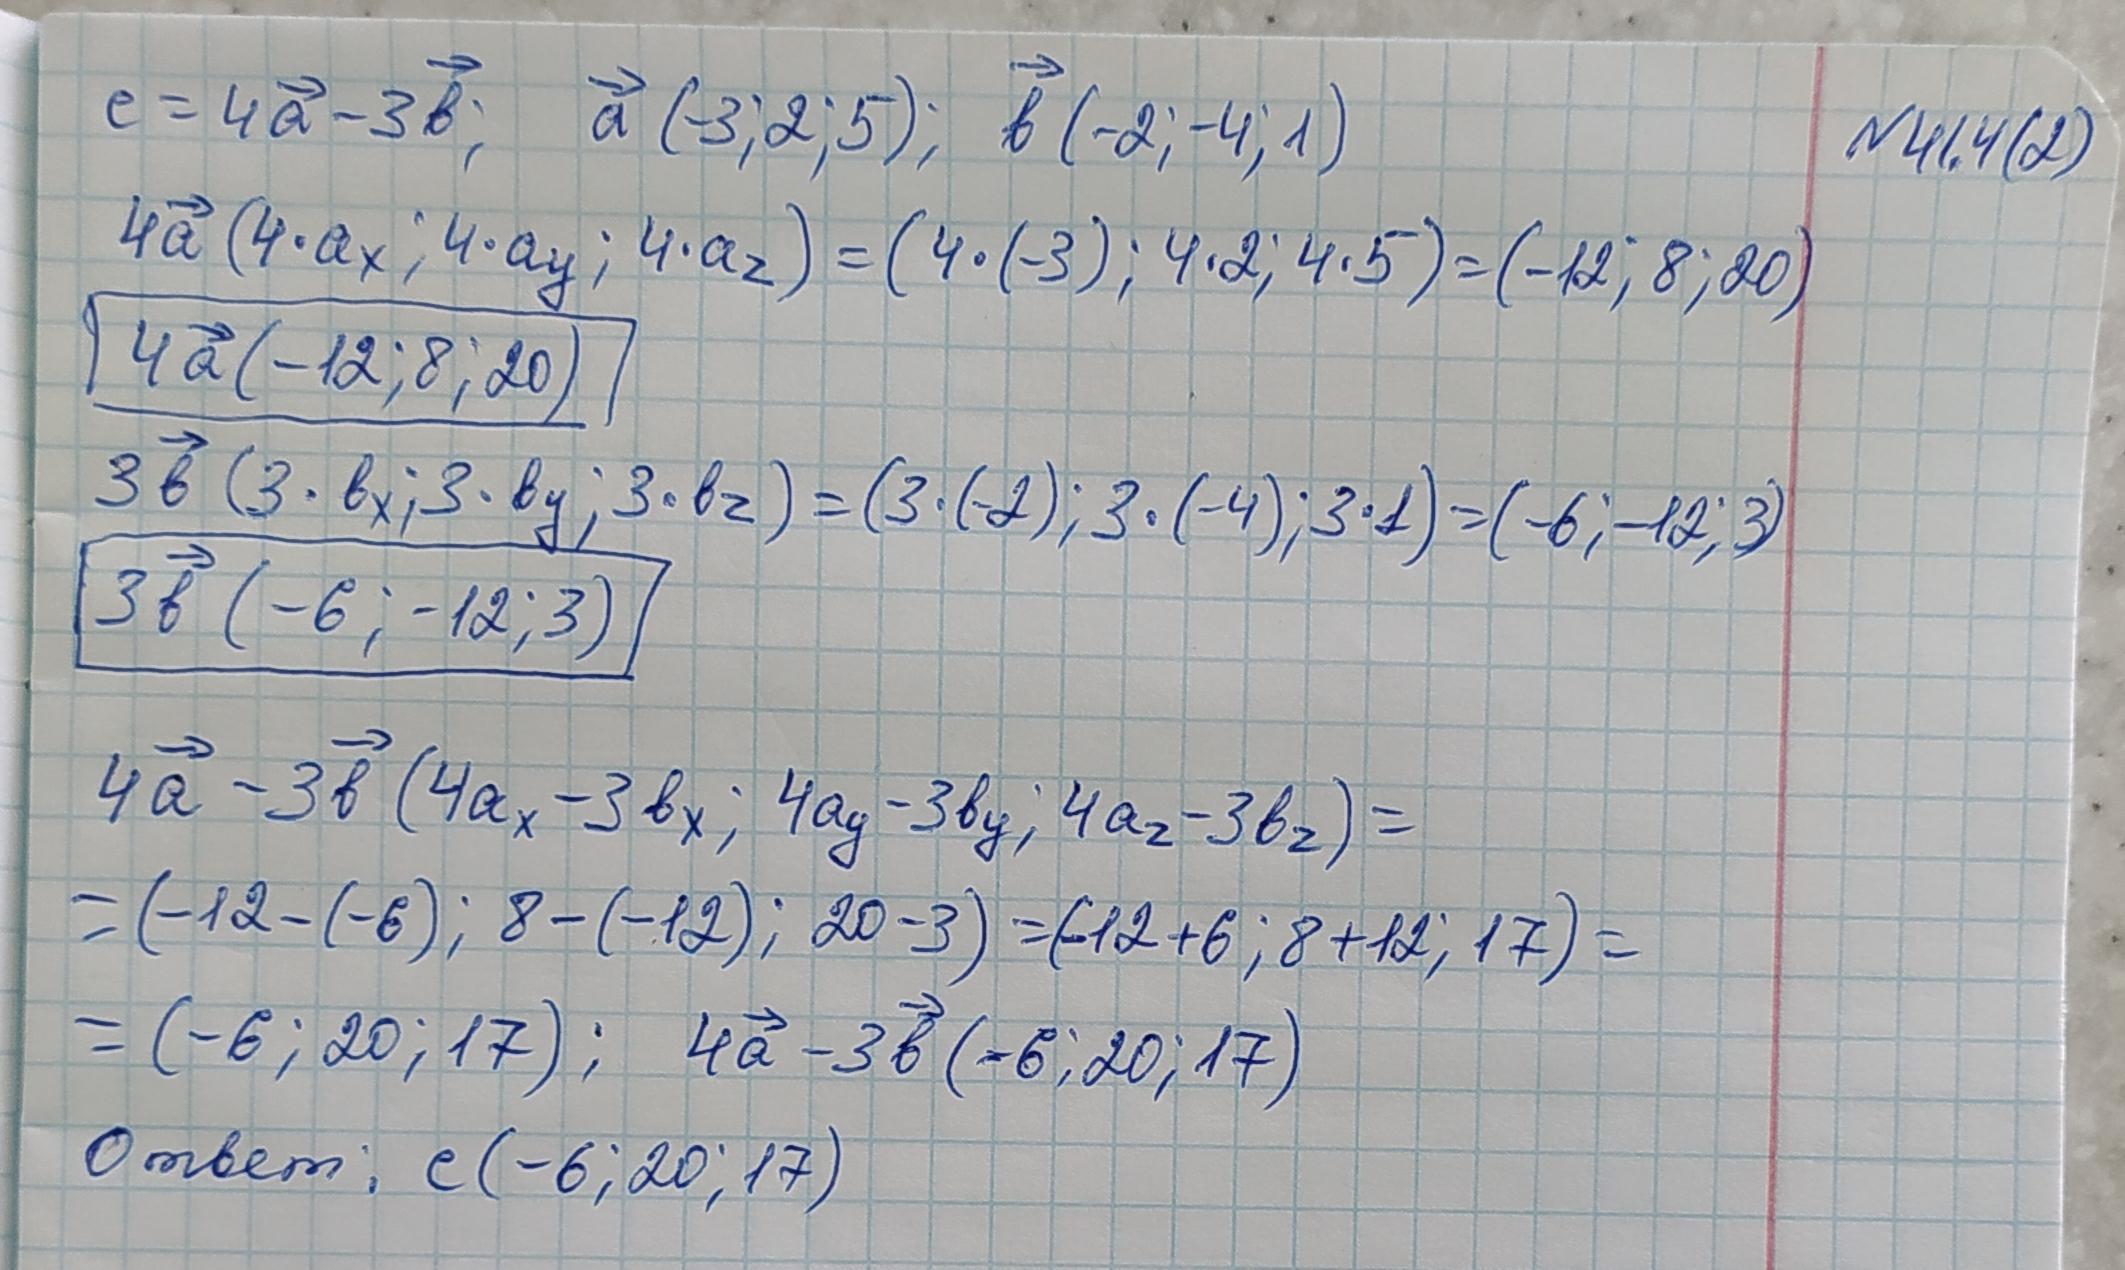 c = 4a⃗ - 3b⃗; a⃗ (-3; 2; 5); b⃗ (-2; -4; 1)
№41.4(2)
4a⃗ (4·aₓ; 4·aᵧ; 4·a_z) = (4·(-3); 4·2; 4·5) = (-12; 8; 20)
4a⃗ (-12; 8; 20)
3b⃗ (3·bₓ; 3·bᵧ; 3·b_z) = (3·(-2); 3·(-4); 3·1) = (-6; -12; 3)
3b⃗ (-6; -12; 3)
4a⃗ - 3b⃗ (4aₓ - 3bₓ; 4aᵧ - 3bᵧ; 4a_z - 3b_z) =
= (-12 - (-6); 8 - (-12); 20 - 3) = (-12 + 6; 8 + 12; 17) =
= (-6; 20; 17); 4a⃗ - 3b⃗ (-6; 20; 17)
Ответ: c (-6; 20; 17)